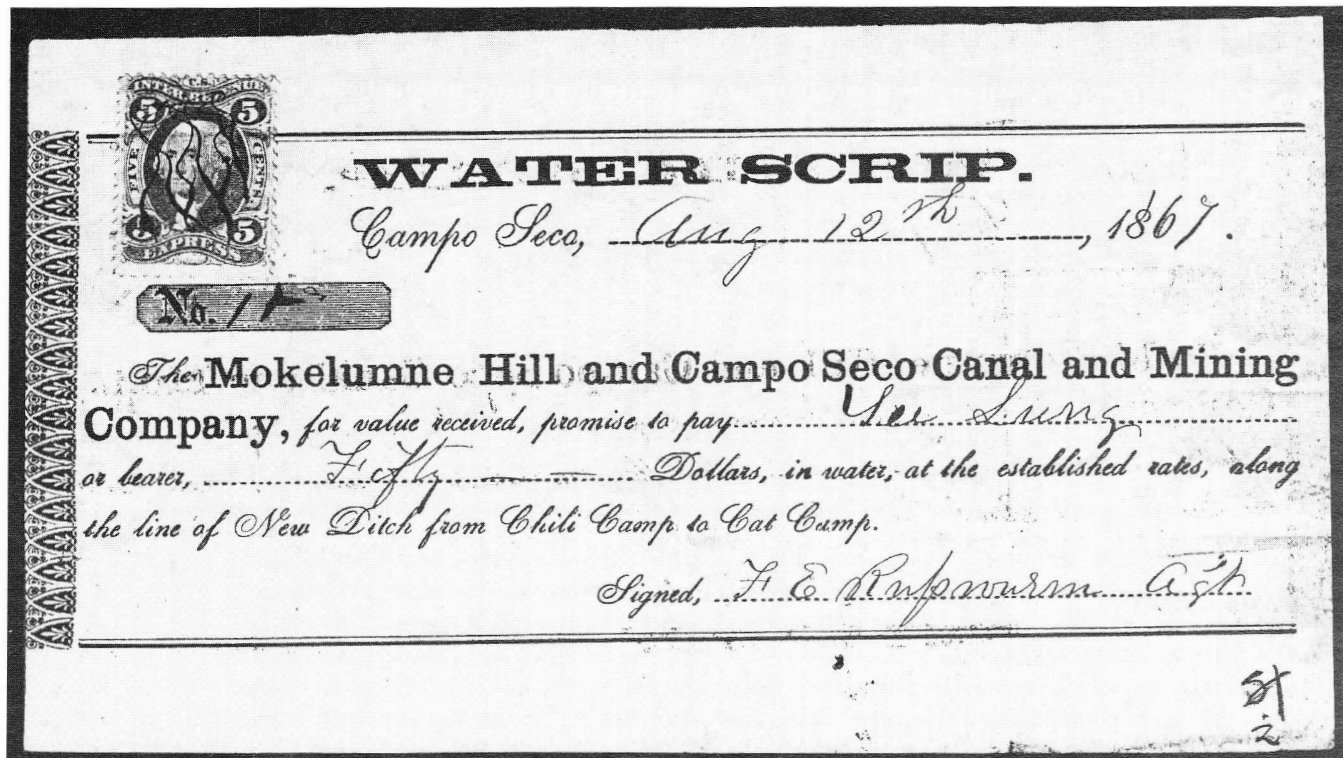 U.S.
INTER. REVENUE
5 5
FIVE CENTS
5
EXPRESS
WATER SCRIP.
Campo Seco, Aug 12th, 1867.
No. 1
The Mokelumne Hill and Campo Seco Canal and Mining
Company, for value received, promise to pay Yee Sung
or bearer, Fifty Dollars, in water, at the established rates, along
the line of New Ditch from Chili Camp to Cat Camp.
Signed, F E Agt